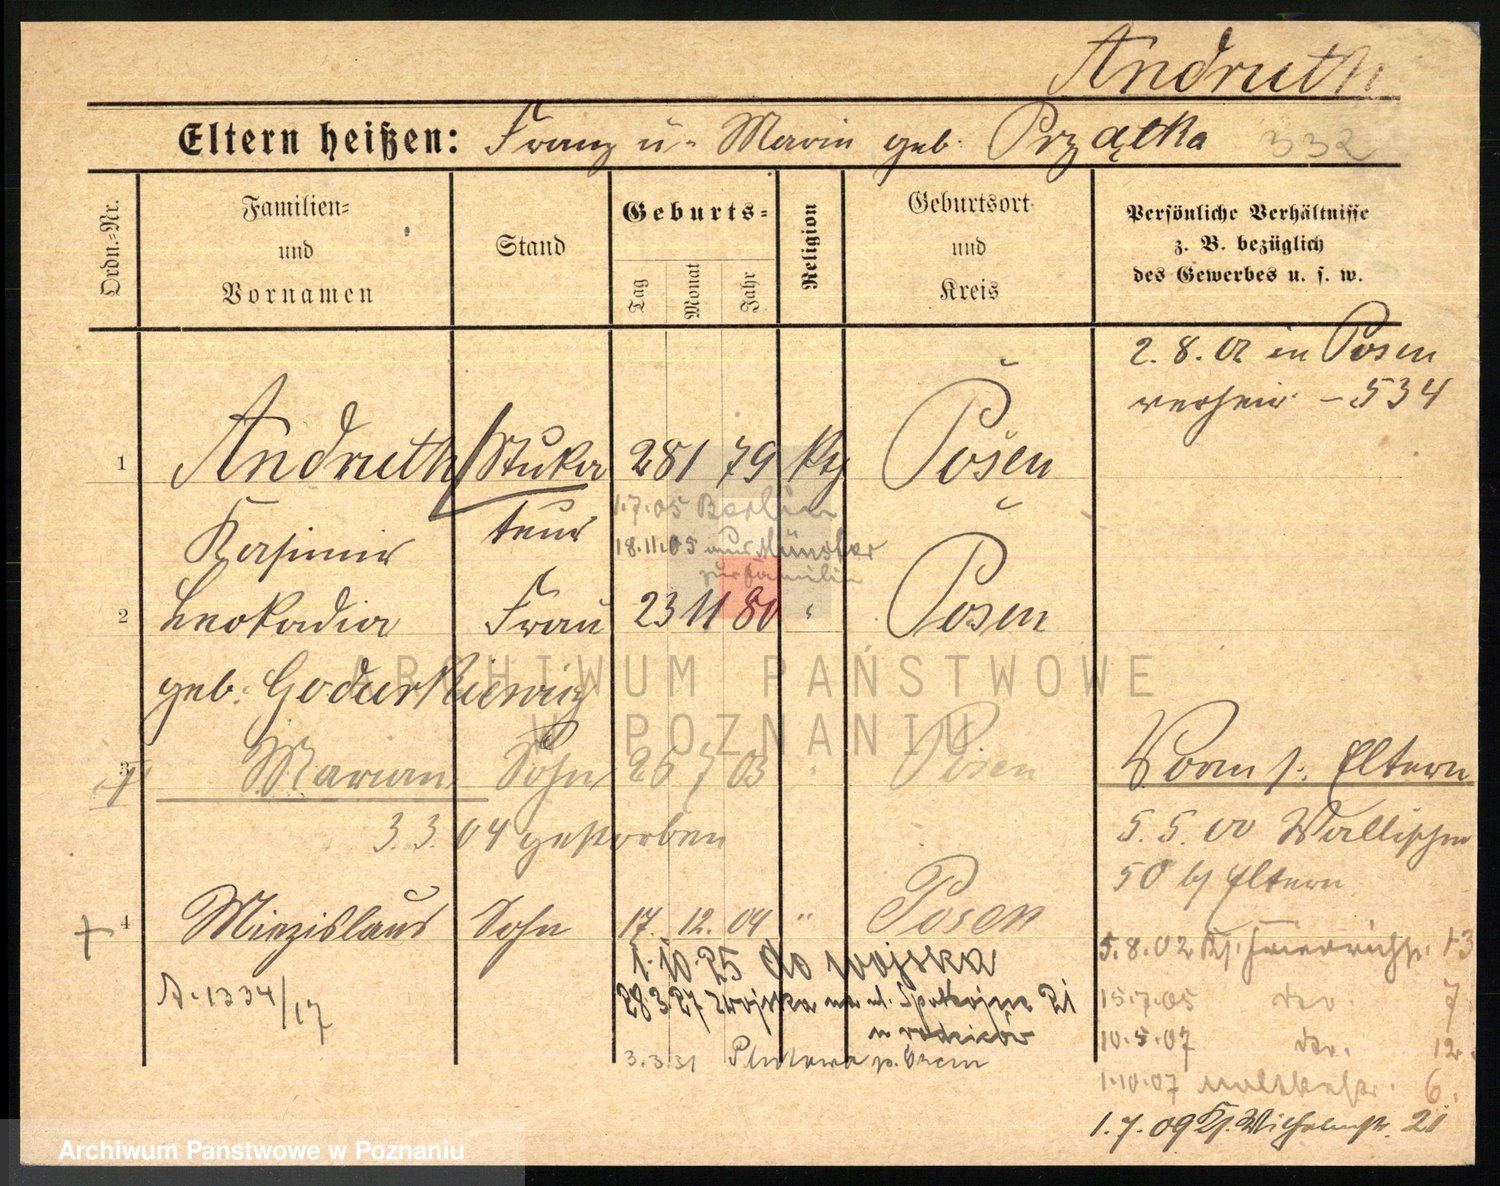 Andruth
Eltern heißen: Franz u. Marie geb. Prządka 332
Ordn.=Nr.
Familien=
und
Vornamen
Stand
Geburts=
Tag
Monat
Jahr
Religion
Geburtsort
und
Kreis
Persönliche Verhältnisse
z. B. bezüglich
des Gewerbes u. s. w.
2. 8. 02 in Posen
verheir. – 534
1 Andruth Stuka 28 1 79 Posen
Kasimir teur
1.7.05 Berlin
18.11.05 aus Münster
zur Familie
2 Leokadia Frau 23 11 80 " Posen
geb.
3 Marian Sohn 26 7 03 Posen
3. 3. 04 gestorben
4 Miezislaus Sohn 17. 12. 04 " Posen
A. 1334/17
1.10.25 do wojska
28.3.27 z wojska na ul. Spokojna 21
u rodziców
3.3.31
Vorm s. Eltern
5. 5. 00 Wallischei
50 b/ Eltern
5.8.02 Ks. Friedrichstr. 13
15.7.05 7
10.5.07 12.
1.10.07 6.
1. 7. 09 Ks. Wilhelmstr. 21
ARCHIWUM PAŃSTWOWE
W POZNANIU
Archiwum Państwowe w Poznaniu